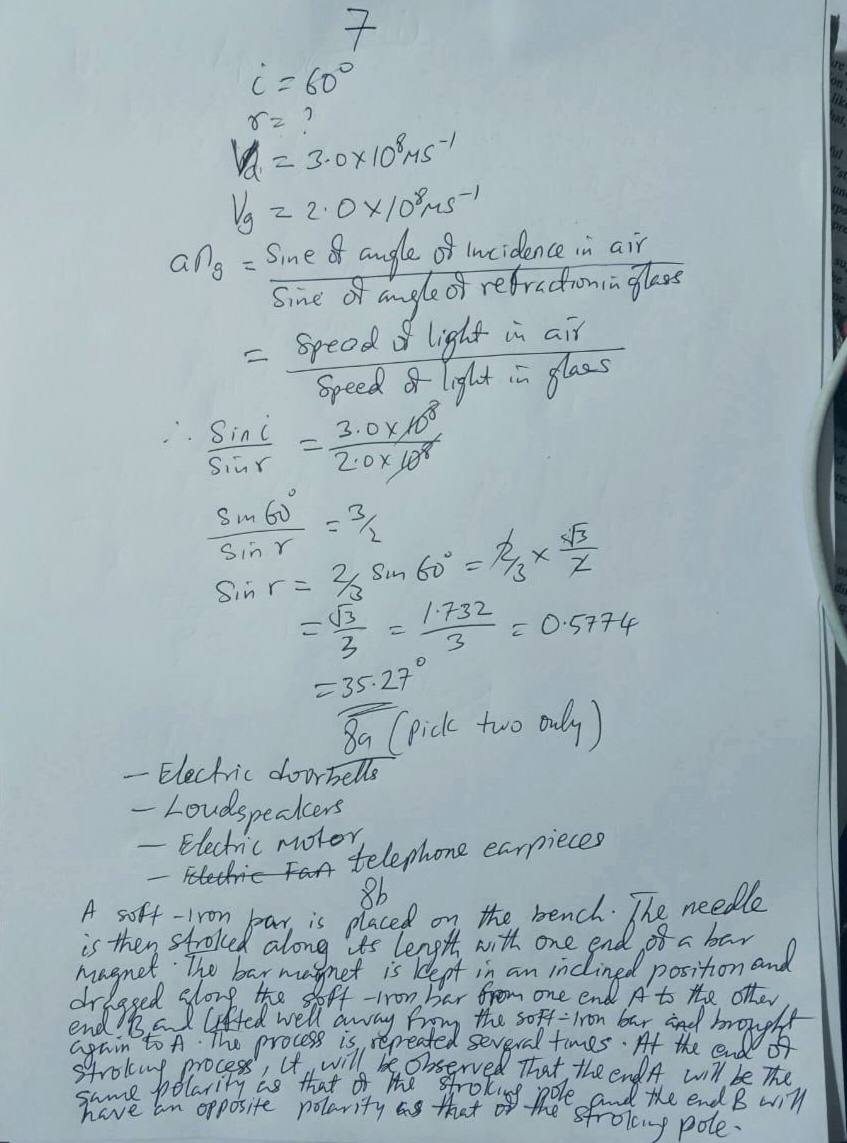 7
i = 60°
r = ?
Va = 3.0 x 10⁸ MS⁻¹
Vg = 2.0 x 10⁸ MS⁻¹
ang = Sine of angle of incidence in air
Sine of angle of refraction in glass
= Speed of light in air
Speed of light in glass
∴ Sin i / Sin r = 3.0 x 10⁸ / 2.0 x 10⁸
Sin 60° / Sin r = 3/2
Sin r = 2/3 Sin 60° = 2/3 x √3/2
= √3/3 = 1.732/3 = 0.5774
= 35.27°
8a (Pick two only)
- Electric doorbells
- Loudspeakers
- Electric Motor
- Electric Fan telephone earpieces
8b
A soft-iron bar is placed on the bench. The needle
is then stroked along its length with one end of a bar
magnet. The bar magnet is kept in an inclined position and
dragged along the soft-iron bar from one end A to the other
end B and lifted well away from the soft-iron bar and brought
again to A. The process is repeated several times. At the end of
stroking process, it will be observed that the end A will be the
same polarity as that of the stroking pole and the end B will
have an opposite polarity as that of the stroking pole.